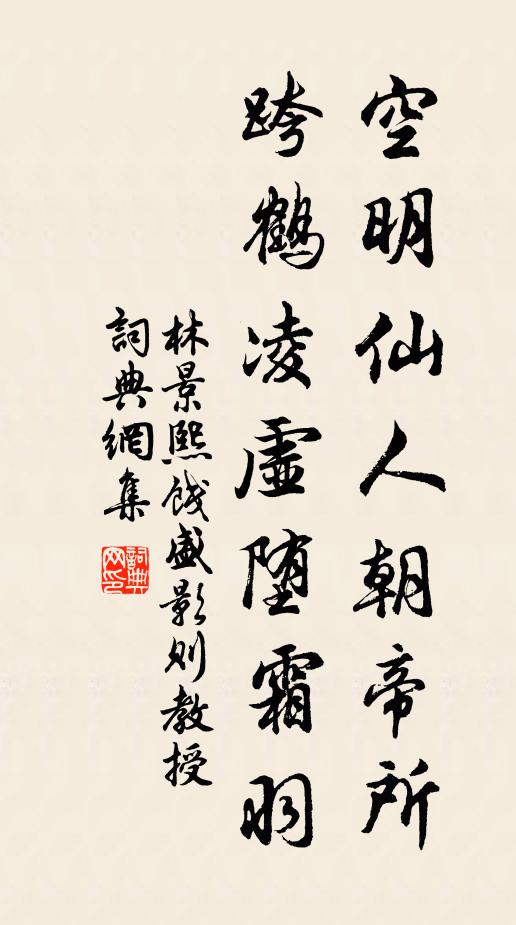 空明仙人朝帝所
跨鶴凌虛堕霜羽
林景熙餞盛影則教授
詞典網集
詞典网印